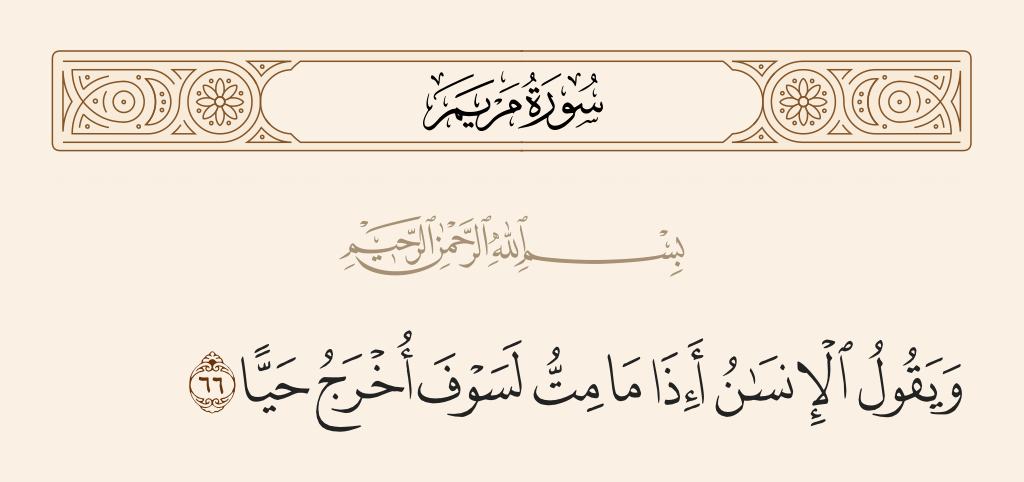 سُورَةُ مَرْيَمَ
بِسْمِ ٱللَّهِ ٱلرَّحْمَٰنِ ٱلرَّحِيمِ
وَيَقُولُ ٱلْإِنسَٰنُ أَءِذَا مَا مِتُّ لَسَوْفَ أُخْرَجُ حَيًّا ٦٦